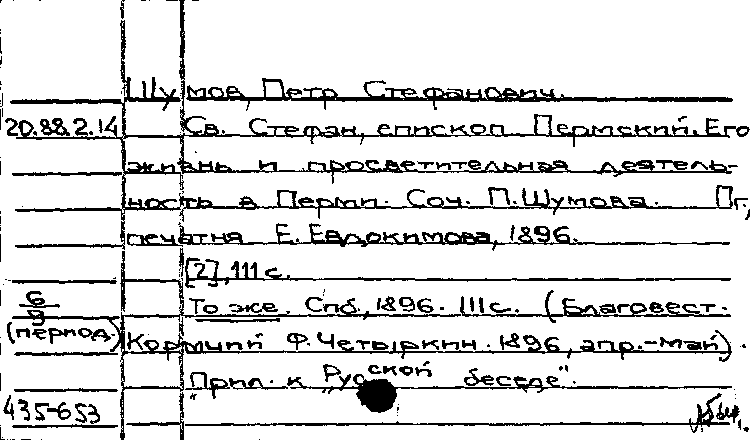 Шумов, Петр Стефанович.
20.88.2.14 Св. Стефан, епископ Пермский. Его
жизнь и просветительная деятель-
ность в Перми. Соч. П. Шумова. Пг,
печатня Е. Евдокимова, 1896.
[2], 111 с.
6/9 То же. Спб., 1896. 111 с. (Благовест.
(период) Кормчий Ф. Четыркин. 1896, апр.-май).
"Прил. к "Русской беседе".
435-653